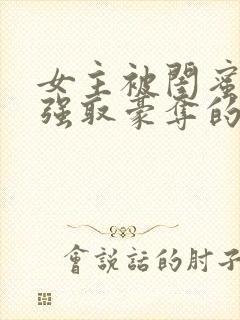 女主被閨蜜
強取豪奪的
會説話的肘子